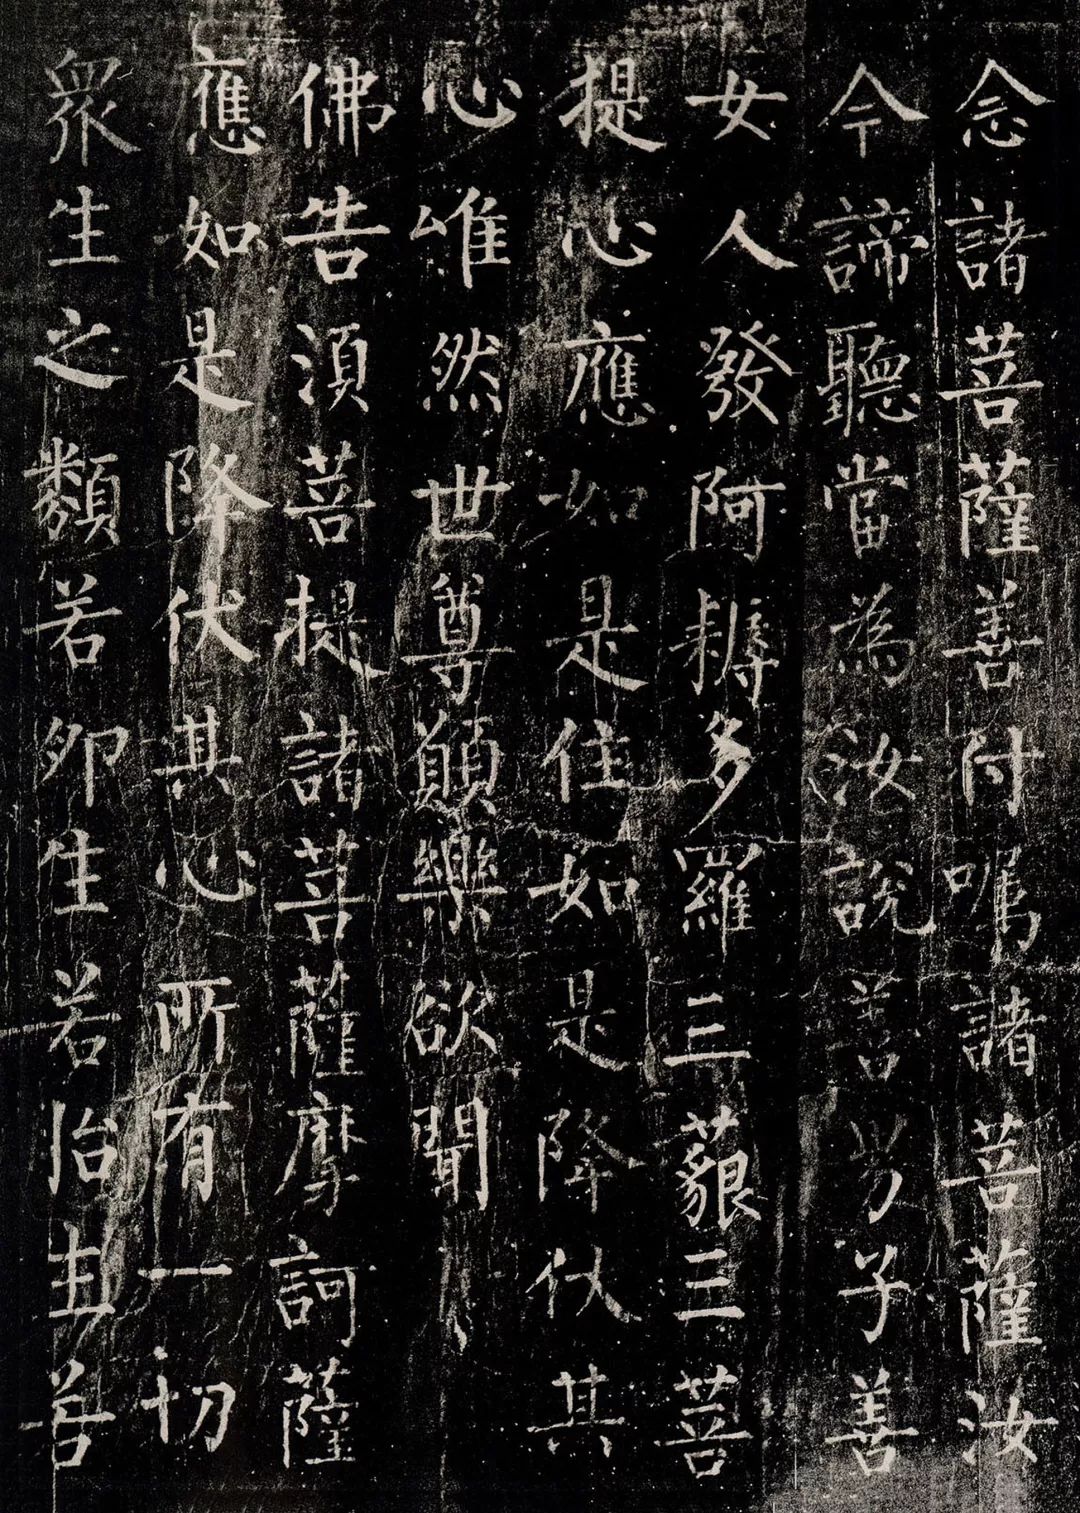 念諸菩薩善付囑諸菩薩汝
今諦聽當為汝說善男子善
女人發阿耨多羅三藐三菩
提心應如是住如是降伏其
心唯然世尊願樂欲聞
佛告須菩提諸菩薩摩訶薩
應如是降伏其心所有一切
眾生之類若卵生若胎生若